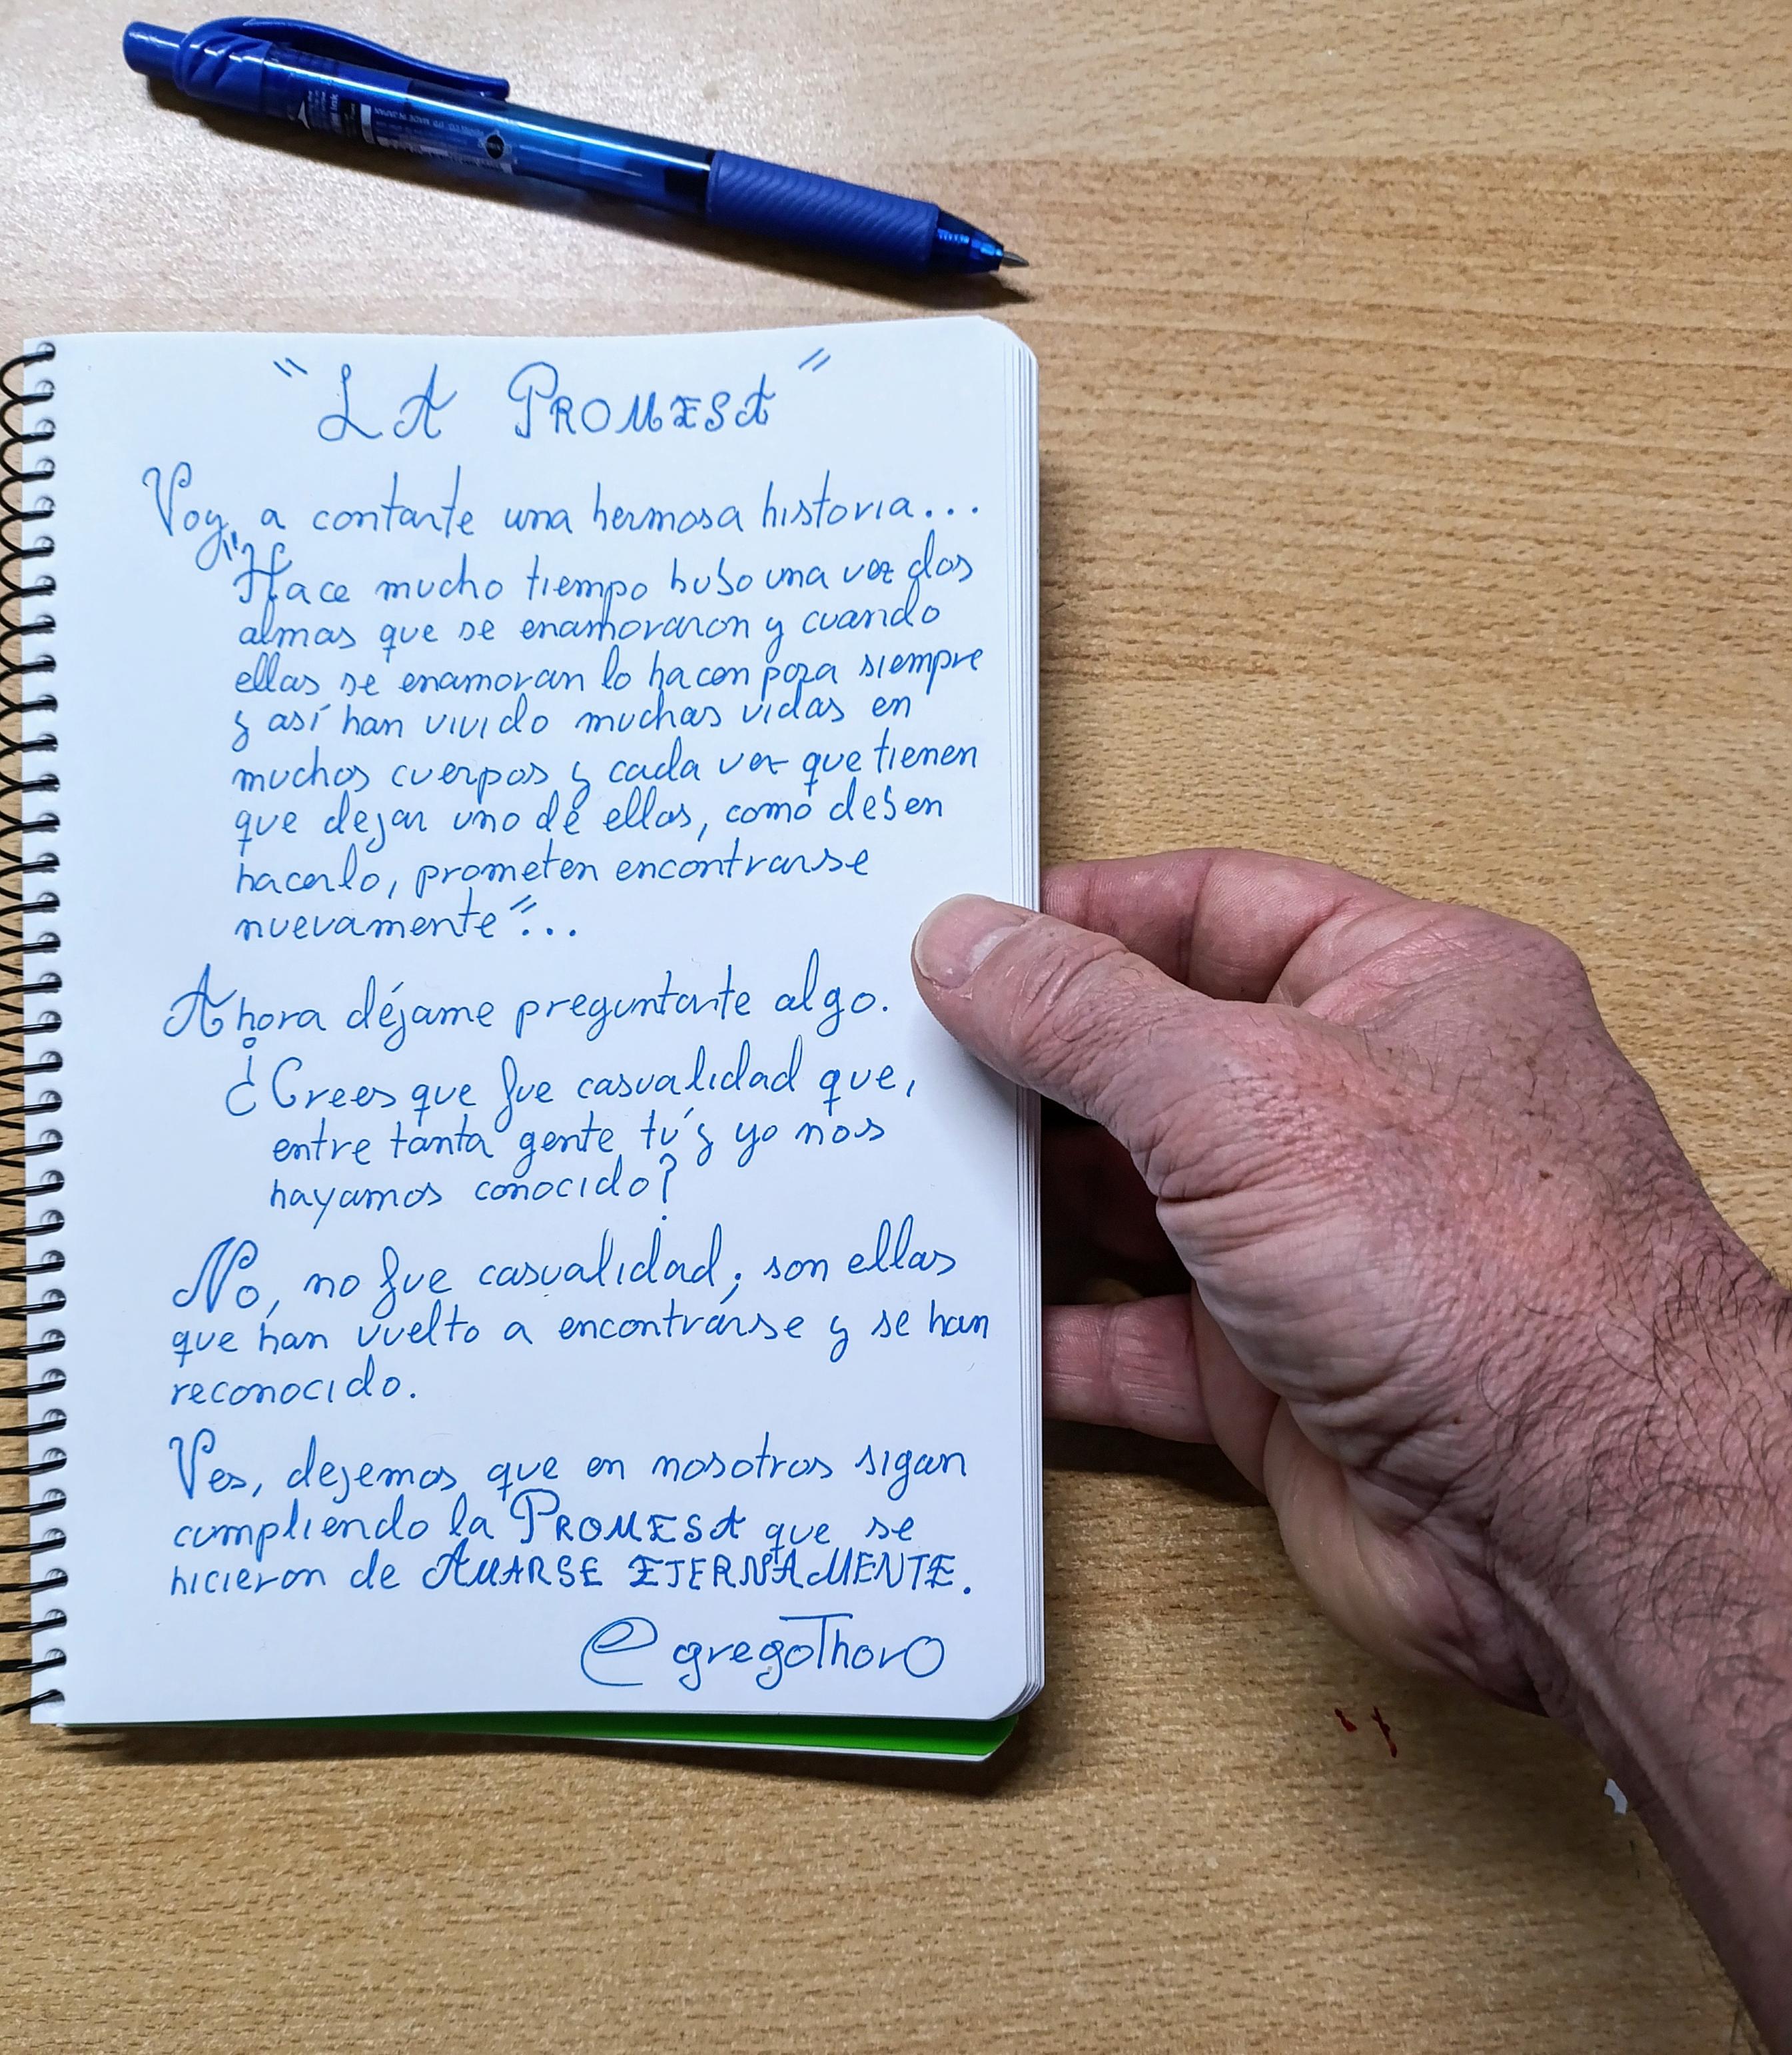 MADE IN JAPAN
"LA PROMESA"
Voy a contarte una hermosa historia...
"Hace mucho tiempo hubo una vez dos
almas que se enamoraron y cuando
ellas se enamoran lo hacen para siempre
y así han vivido muchas vidas en
muchos cuerpos y cada vez que tienen
que dejar uno de ellos, como deben
hacerlo, prometen encontrarse
nuevamente"...
Ahora déjame preguntarte algo.
¿Crees que fue casualidad que,
entre tanta gente tú y yo nos
hayamos conocido?
No, no fue casualidad; son ellas
que han vuelto a encontrarse y se han
reconocido.
Ves, dejemos que en nosotros sigan
cumpliendo la PROMESA que se
hicieron de AMARSE ETERNAMENTE.
@gregoThorO